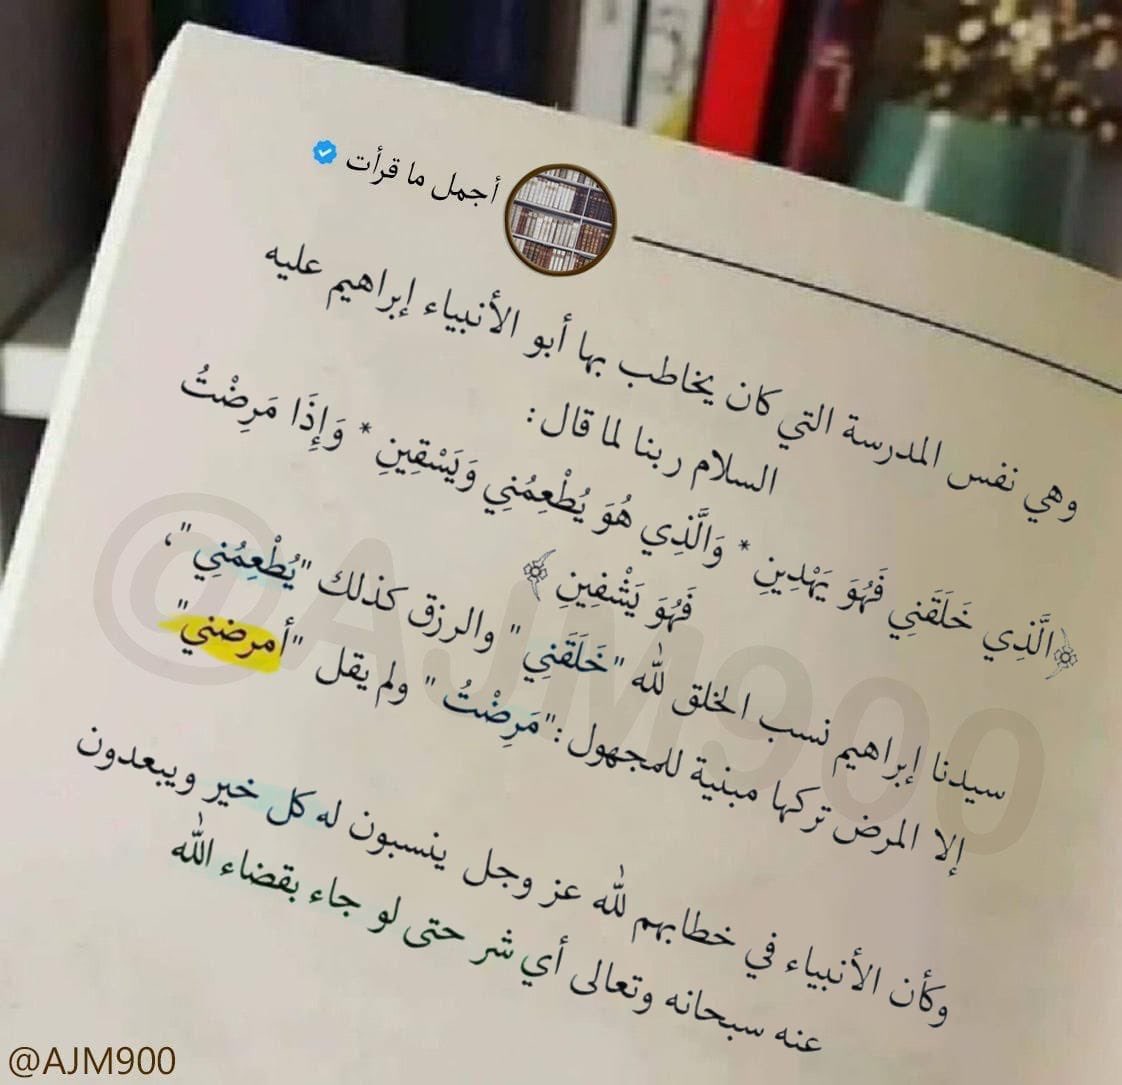 أجمل ما قرأت
وهي نفس المدرسة التي كان يخاطب بها أبو الأنبياء إبراهيم عليه
السلام ربنا لما قال:
﴿الَّذِي خَلَقَنِي فَهُوَ يَهْدِينِ * وَالَّذِي هُوَ يُطْعِمُنِي وَيَسْقِينِ * وَإِذَا مَرِضْتُ
فَهُوَ يَشْفِينِ﴾
سيدنا إبراهيم نسب الخلق لله "خَلَقَنِي" والرزق كذلك "يُطْعِمُنِي"،
إلا المرض تركها مبنية للمجهول: "مَرِضْتُ" ولم يقل "أمرضني"
وكأن الأنبياء في خطابهم لله عز وجل ينسبون له كل خير ويبعدون
عنه سبحانه وتعالى أي شر حتى لو جاء بقضاء الله
@AJM900
@AJM900